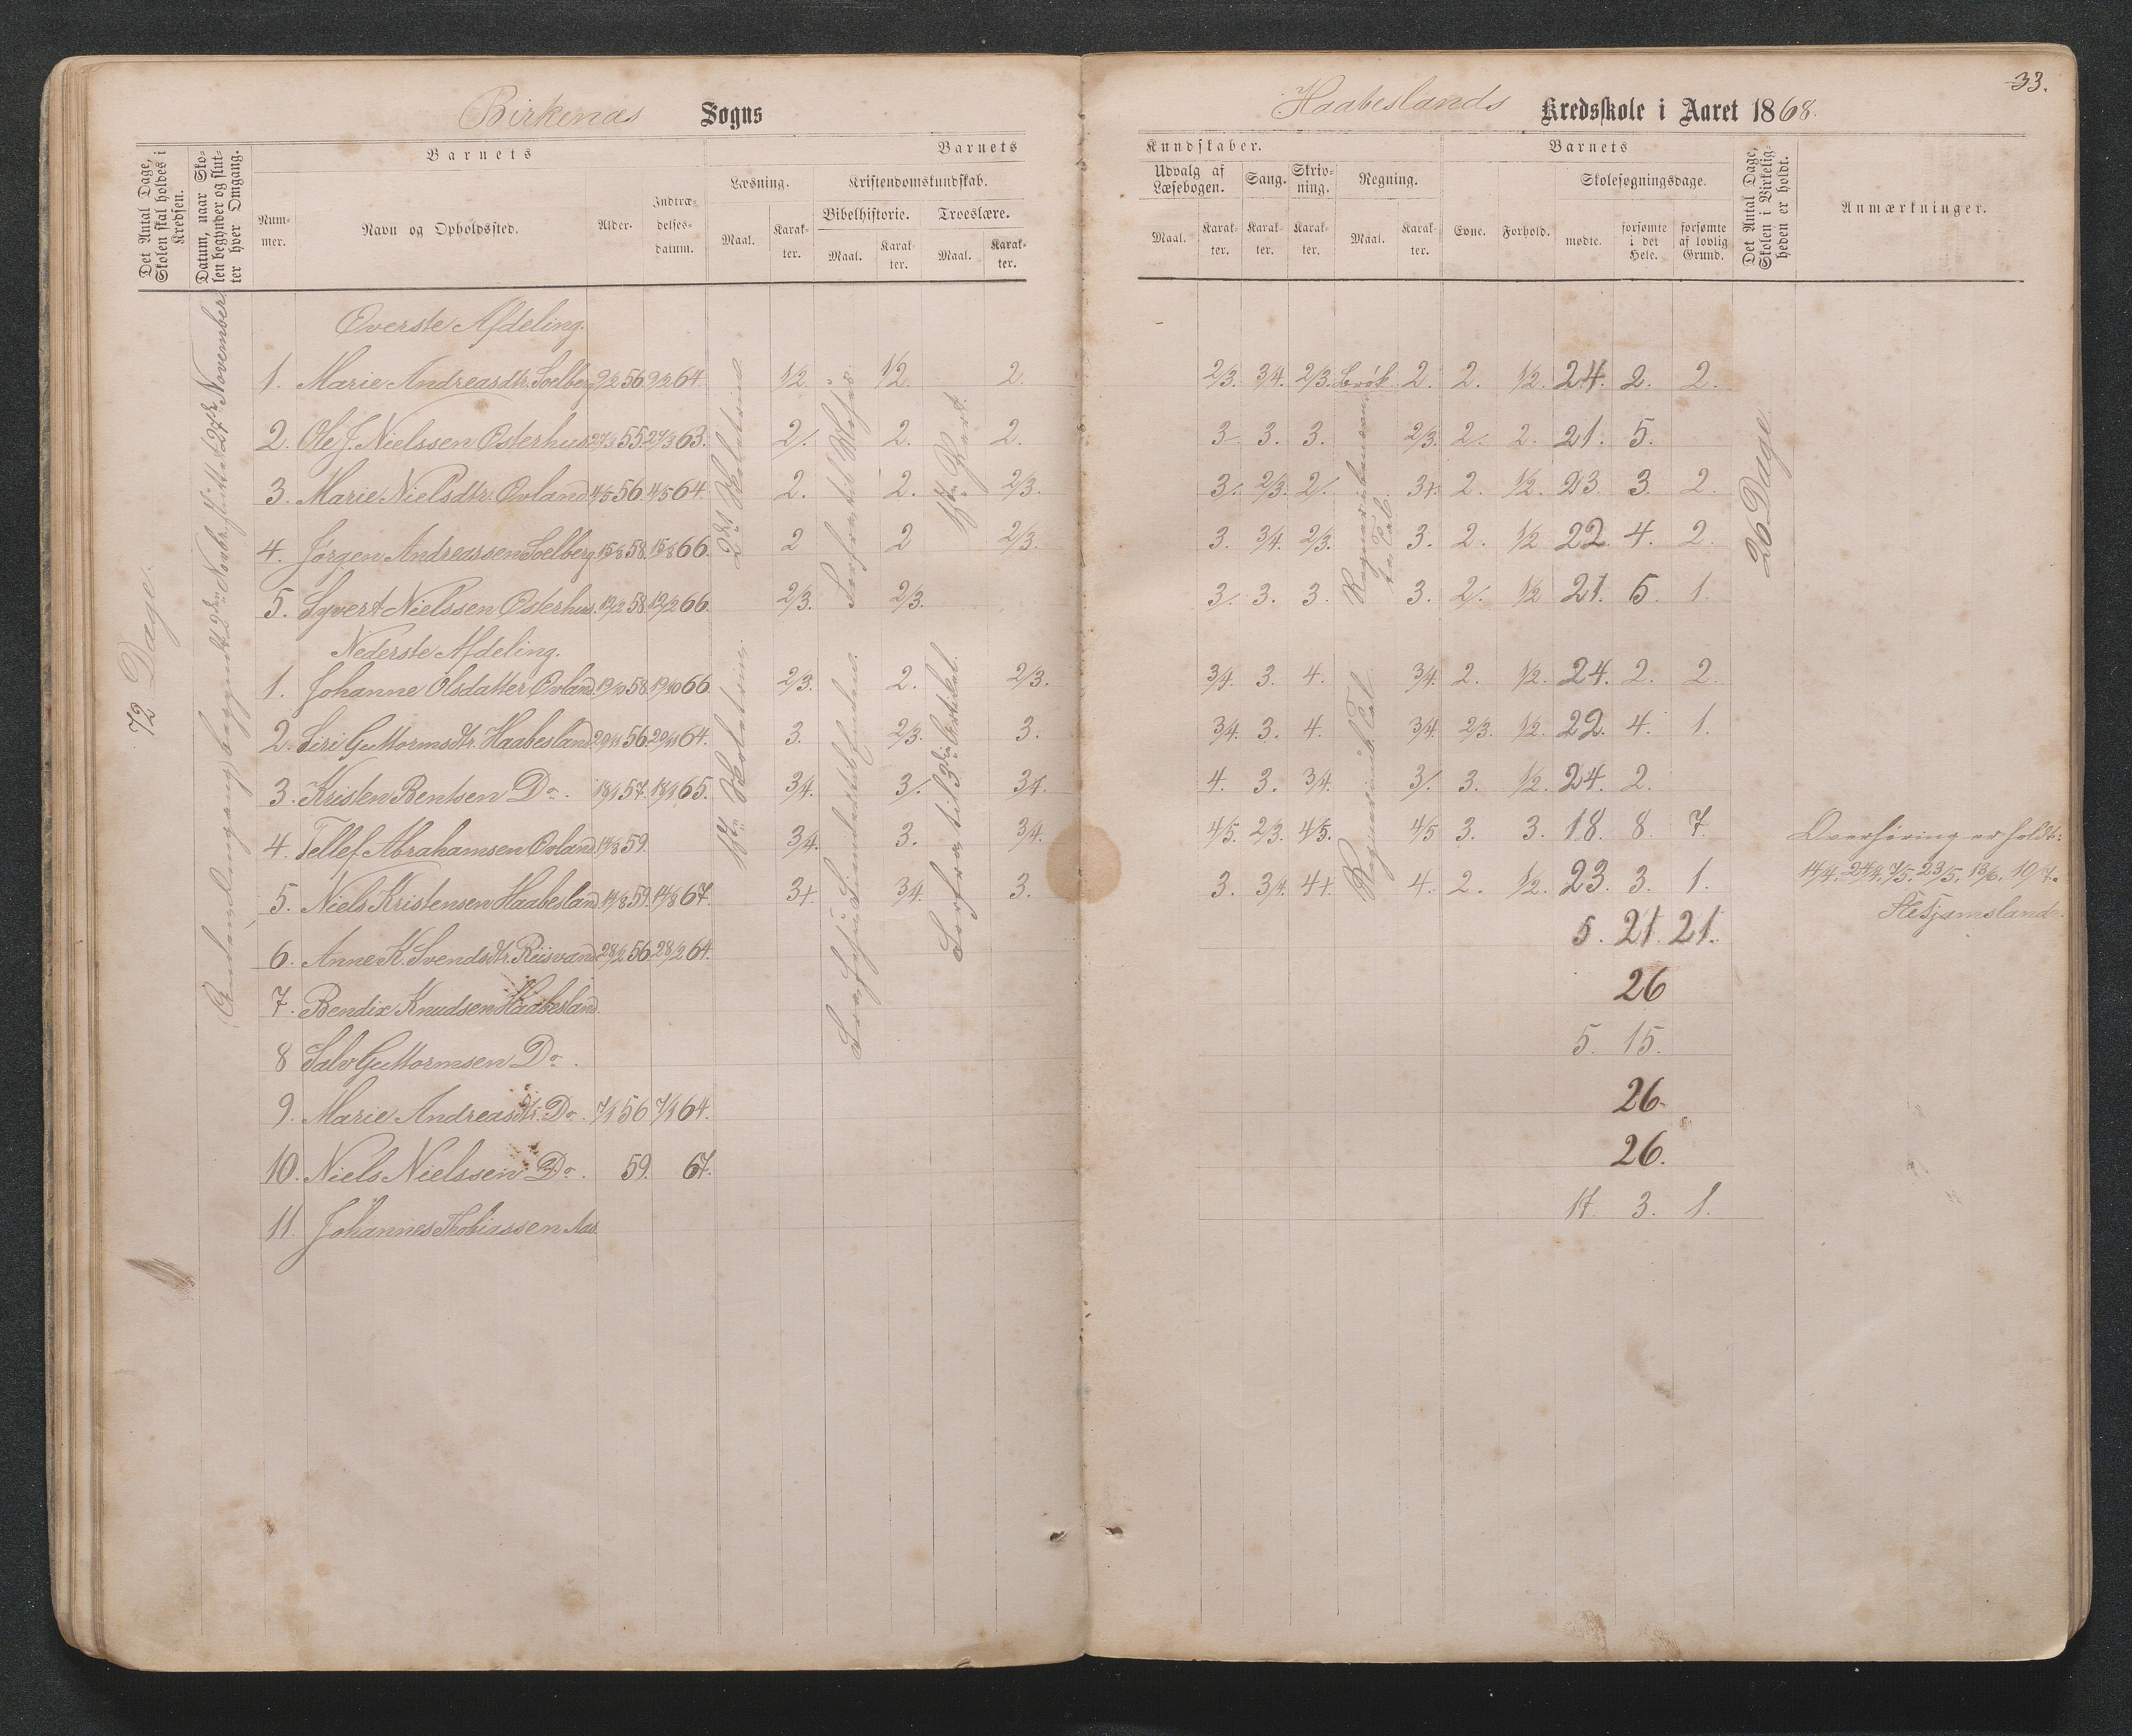 33.
Birkenæs Sogns
Haabeslands Kredsskole i Aaret 1868.
Det Antal Dage, Skolen skal holdes i Kredsen.
Datum, naar Skolen begynder og slutter hver Omgang.
Barnets
Nummer.
Navn og Opholdssted.
Alder.
Indtrædelsesdatum.
Barnets
Læsning.
Kristendomskundskab.
Bibelhistorie.
Troeslære.
Maal.
Karakter.
Maal.
Karakter.
Maal.
Karakter.
Kundskaber.
Udvalg af Læsebogen.
Sang.
Skrivning.
Regning.
Maal.
Karakter.
Karakter.
Karakter.
Maal.
Karakter.
Barnets
Evne.
Forhold.
Skolesøgningsdage.
mødte.
forsømte i det Hele.
forsømte af lovlig Grund.
Det Antal Dage, Skolen i Virkeligheden er holdt.
Anmærkninger.
72 Dage.
November
Overste Afdeling.
1. Marie Andreasdtr. Soelberg 9/2 56 9/2 64. 1/2 1/2. 2. 2/3. 3/4. 2/3. Brøk. 2. 2. 1/2. 24. 2. 2.
2. Ole J. Nielssen Osterhus 27/3 55. 27/3 63. 2/. 2. 2. 3. 3. 3. 2/3. 2/. 2. 21. 5.
3. Marie Nielsdtr. Ovland 4/5 56. 4/5 64. 2. 2. 2/3. 3/. 2/3. 2/. 3+. 2. 1/2. 23. 3. 2.
4. Jørgen Andreassen Soelberg 15/8 58. 15/8 66. 2 2 2/3. 3. 3/4. 2/3. 3. 2. 1/2 22. 4. 2.
5. Syvert Nielssen Osterhus. 19/2 58. 19/2 66. 2/3. 2/3. 3/. 3. 3. 3. 2/. 1/2 21. 5. 1.
Nederste Afdeling.
1. Johanne Olsdatter Ovland. 19/10 58. 19/10 66. 2/3. 2. 2/3. 3/4. 3. 4. 3/4. 2. 1/2. 24. 2. 2.
2. Siri Guttormsdtr. Haabesland 20/11 56. 20/11 64. 3. 2/3. 3. 3/4. 3. 4. 3/4. 2/3. 1/2. 22. 4. 1.
3. Kristen Bentsen Do. 18/1 57. 18/1 65. 3/4. 3/. 3/4. 4. 3. 3/4. 3/. 3. 1/2. 24. 2.
4. Tellef Abrahamsen Ovland. 14/8 59. 3/4. 3. 3/4. 4/5. 2/3. 4/5. 4/5 3. 3. 18. 8. 7.
5. Niels Kristensen Haabesland. 14/8 59. 14/8 67. 3+. 3/4. 3. 3. 3/4. 4+. 4. 2. 1/2. 23. 3. 1.
6. Anne K. Svendsdtr. Riisvand 28/2 56. 28/2 64. 5. 21. 21.
7. Bendix Knudsen Haabesland. 26
8 Salv Guttormsen Do. 5. 15.
9. Marie Andreasdtr. Do. 7/1 56 7/1 64. 26
10. Niels Nielssen Do. 59. 67. 26.
11. Johannes Thobiassen Aas. 17. 3. 1.
26 Dage.
Overhøring er holdt:
14/4. 24/4. 7/5. 23/5. 13/6. 10/7.